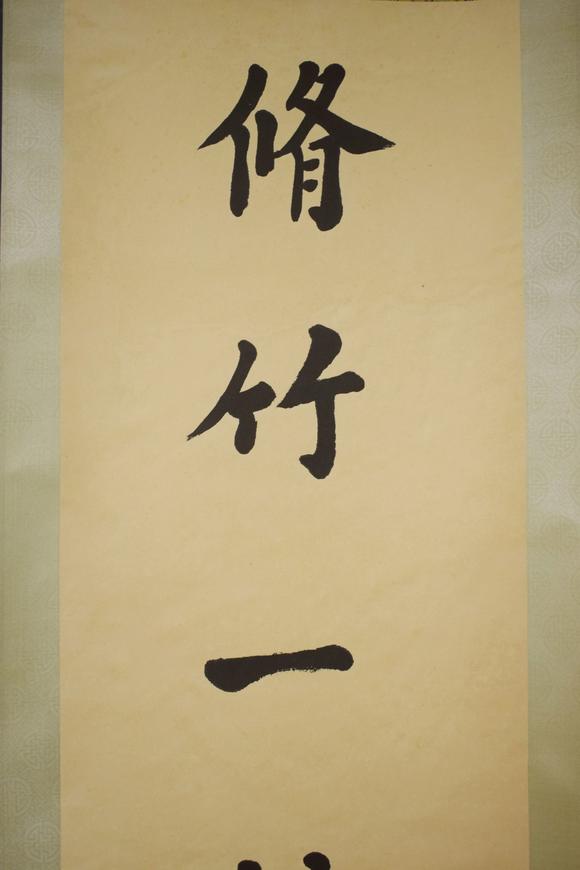 脩竹一